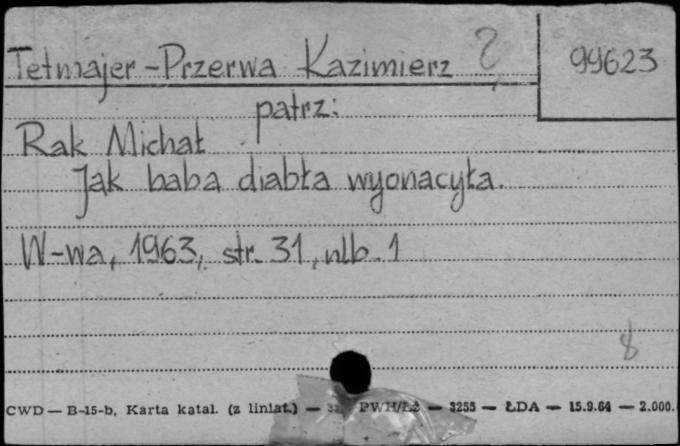 Tetmajer-Przerwa Kazimierz 99623
patrz:
Rak Michał
Jak baba diabła wyonacyła.
W-wa, 1963, str. 31, nlb. 1
8
CWD — B-15-b, Karta katal. (z liniat.) — PWH/Łż — 3255 — ŁDA — 15.9.64 — 2.000.